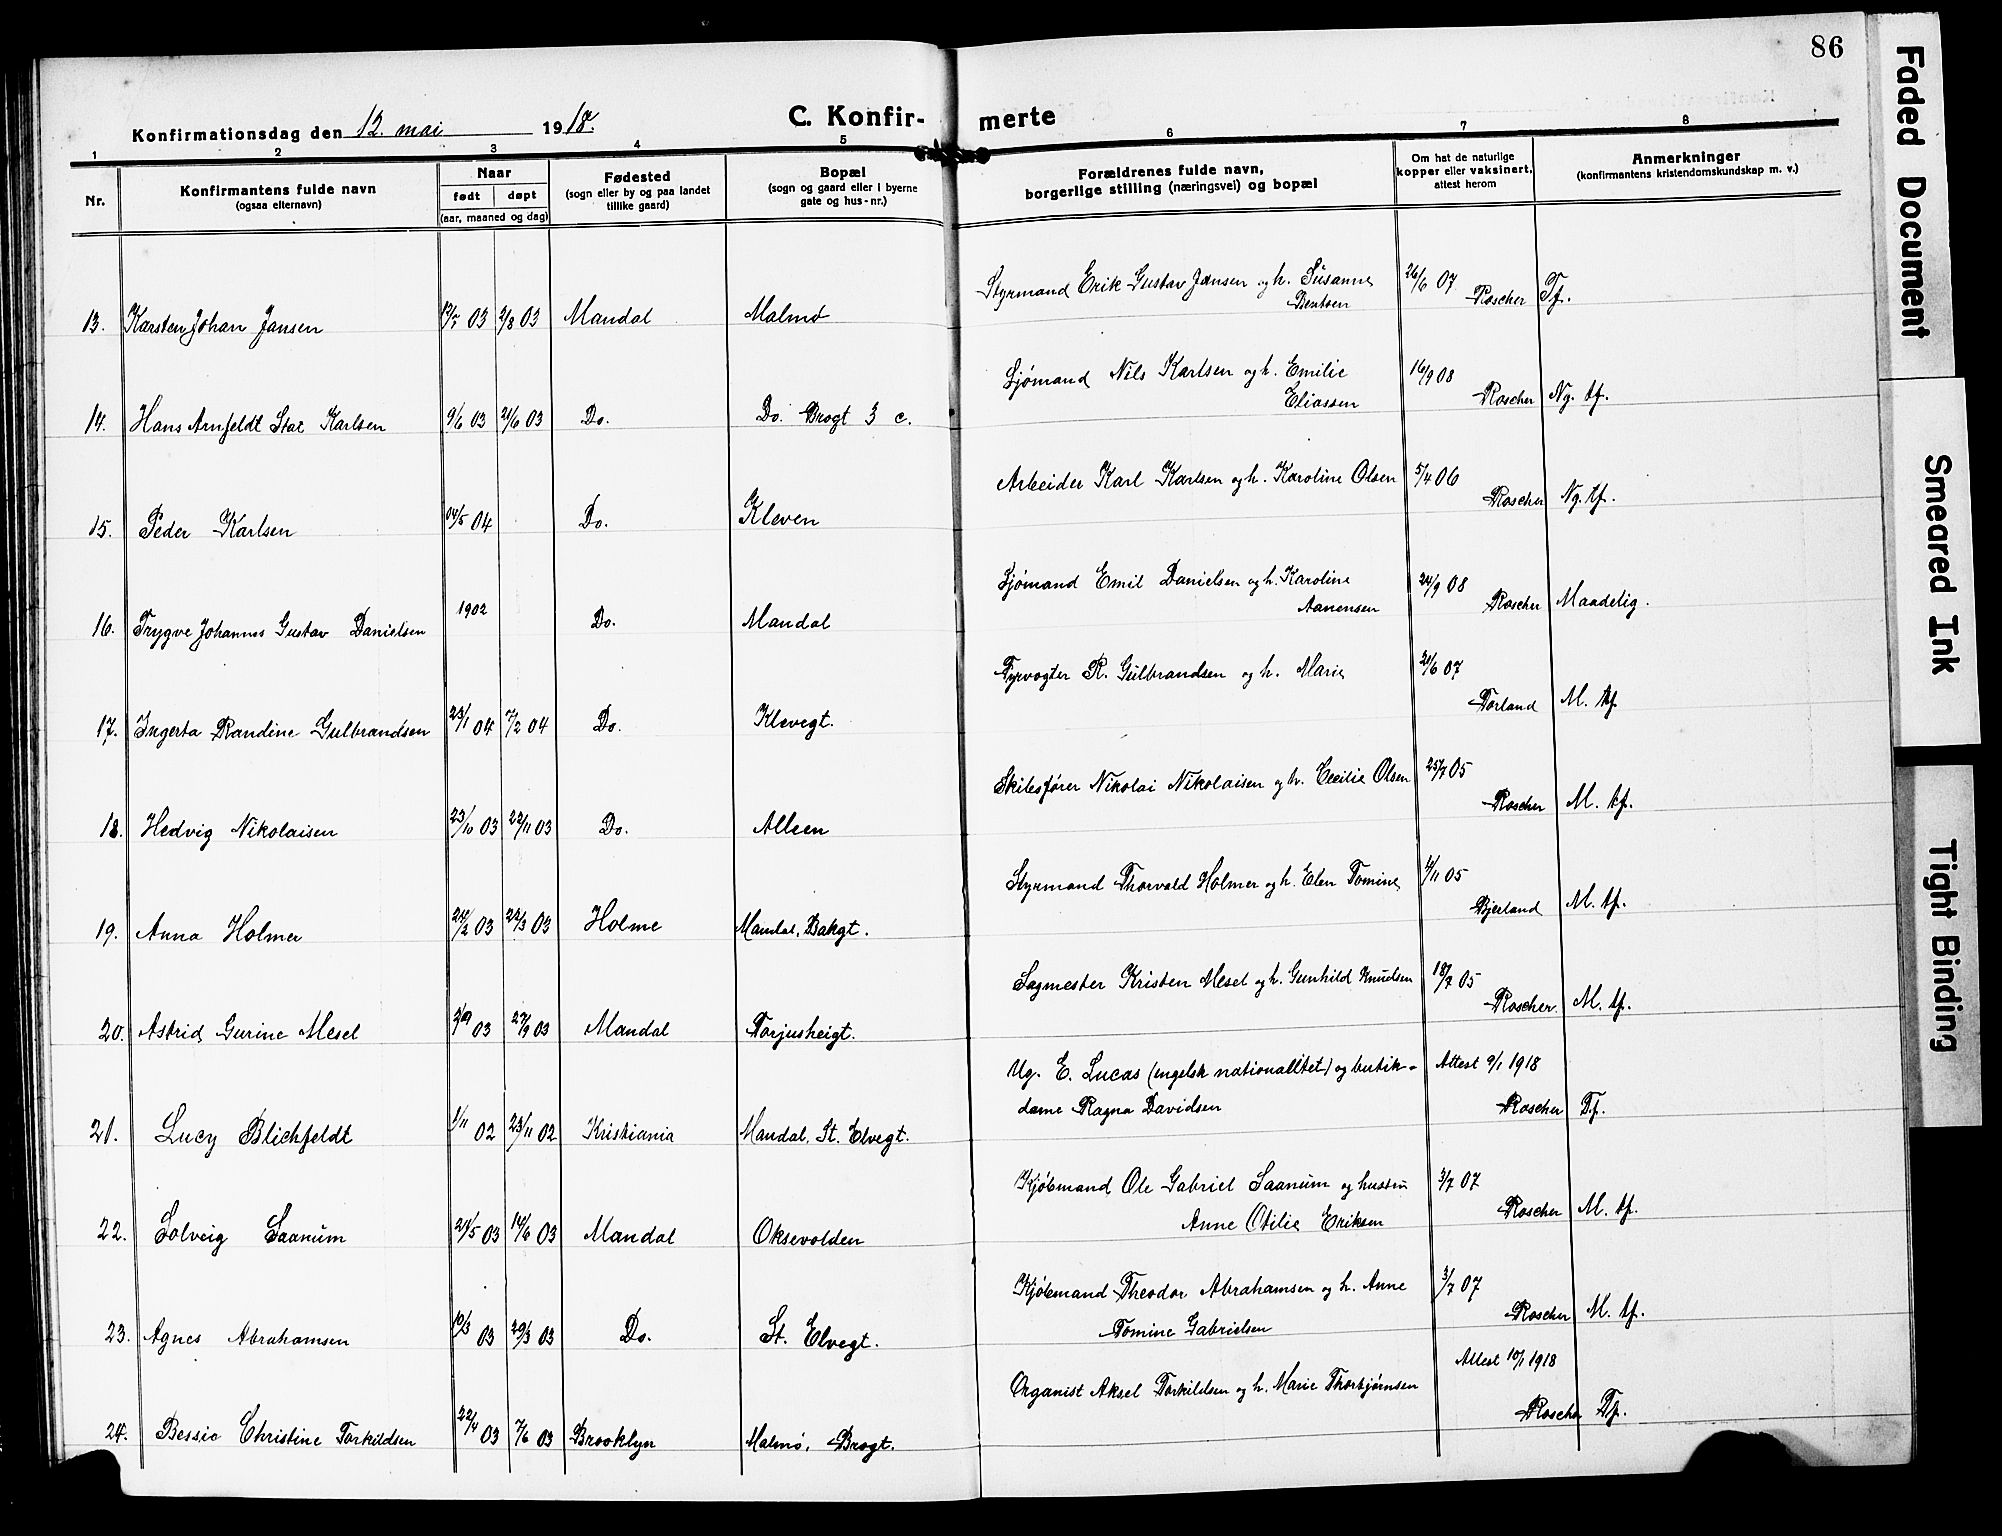 86
Konfirmationsdag den 12. mai 1918.
C. Konfirmerte
1 2 3 4 5 6 7 8
Nr.
Konfirmantens fulde navn
(ogsaa efternavn)
Naar
født døpt
(aar, maaned og dag)
Fødested
(sogn eller by og paa landet
tillike gaard)
Bopæl
(sogn og gaard eller i byerne
gate og hus-nr.)
Forældrenes fulde navn,
borgerlige stilling (næringsvei) og bopæl
Om hat de naturlige
kopper eller vaksinert,
attest herom
Anmerkninger
(konfirmantens kristendomskundskap m. v.)
Styrmand Erik Gustav Jansen og h. Susanne 26/6 07
Bentsen Roscher Tf.
13. Karsten Johan Jansen 12/7 03 2/8 03 Mandal Malmø
Sjømand Nils Karlsen og h. Emilie 16/9 08
Eliassen Roscher Ng. tf.
14. Hans Arnfeldt Karlsen 9/6 03 21/6 03 Do. Do. Brogt 3 c.
Arbeider Karl Karlsen og h. Karoline Olsen 5/4 06
Roscher Ng. tf.
15. Peder Karlsen 04 Do. Kleven
Sjømand Emil Danielsen og h. Karoline 24/9 08
Aanensen Roscher Maadelig.
16. Trygve Johannes Gustav Danielsen 1902 Do. Mandal
Fyrvogter R. Gulbrandsen og h. Marie 07
Førland M. tf.
17. Ingerta Randine Gulbrandsen 23/1 04 7/2 04 Do. Klevegt.
Skibsfører Nikolai Nikolaisen og h. Cecilie Olsen 25/7 05
Roscher M. tf.
18. Hedvig Nikolaisen 23/10 03 22/11 03 Do. Alleen
Styrmand Thorvald Holmer og h. Elen Tomine 4/11 05
Bjerland M. tf.
19. Anna Holmer 24/2 03 22/3 03 Holme Mandal, Bakgt.
Sagmester Kristen Mesel og h. Gunhild Knudsen 18/7 05
Roscher M. tf.
20. Astrid Gurine Mesel 03 27/9 03 Mandal Torjusheigt.
Ug. E. Lucas (engelsk nationalitet) og butik- Attest 9/1 1918
dame Ragna Davidsen Roscher Tf.
21. Lucy Blichfeldt 1/11 02 23/11 02 Kristiania Mandal, St. Elvegt.
Kjøbmand Ole Gabriel Saanum og hustru 3/7 07
Anne Otilie Eriksen Roscher M. tf.
22. Solveig Saanum 21/5 03 14/6 03 Mandal Oksevolden
Kjøbmand Theodor Abrahamsen og h. Anne 3/7 07
Tomine Gabrielsen Roscher M. tf.
23. Agnes Abrahamsen 10/3 03 29/3 03 Do. St. Elvegt.
Organist Aksel Torkildsen og h. Marie Thorbjørnsen Attest 10/1 1918
Roscher Tf.
24. Bessie Christine Torkildsen 22/4 03 7/6 03 Brooklyn Malmø, Brogt.
Faded Document
Smeared Ink
Tight Binding